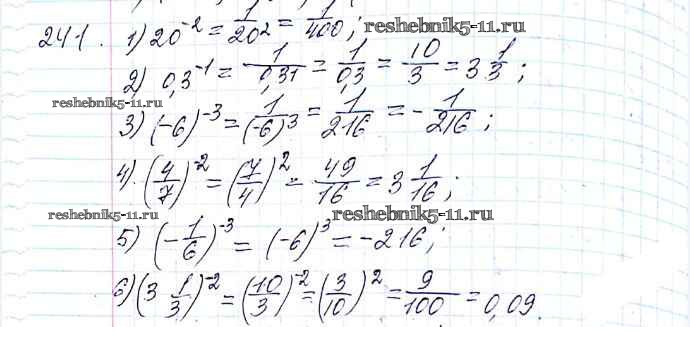 241. 1) 20⁻² = 1/20² = 1/400; reshebnik5-11.ru
2) 0,3⁻¹ = 1/0,3¹ = 1/0,3 = 10/3 = 3 1/3;
reshebnik5-11.ru
3) (-6)⁻³ = 1/(-6)³ = 1/216 = -1/216;
4). (4/7)⁻² = (7/4)² = 49/16 = 3 1/16;
reshebnik5-11.ru reshebnik5-11.ru
5) (-1/6)⁻³ = (-6)³ = -216;
6) (3 1/3)⁻² = (10/3)⁻² = (3/10)² = 9/100 = 0,09.